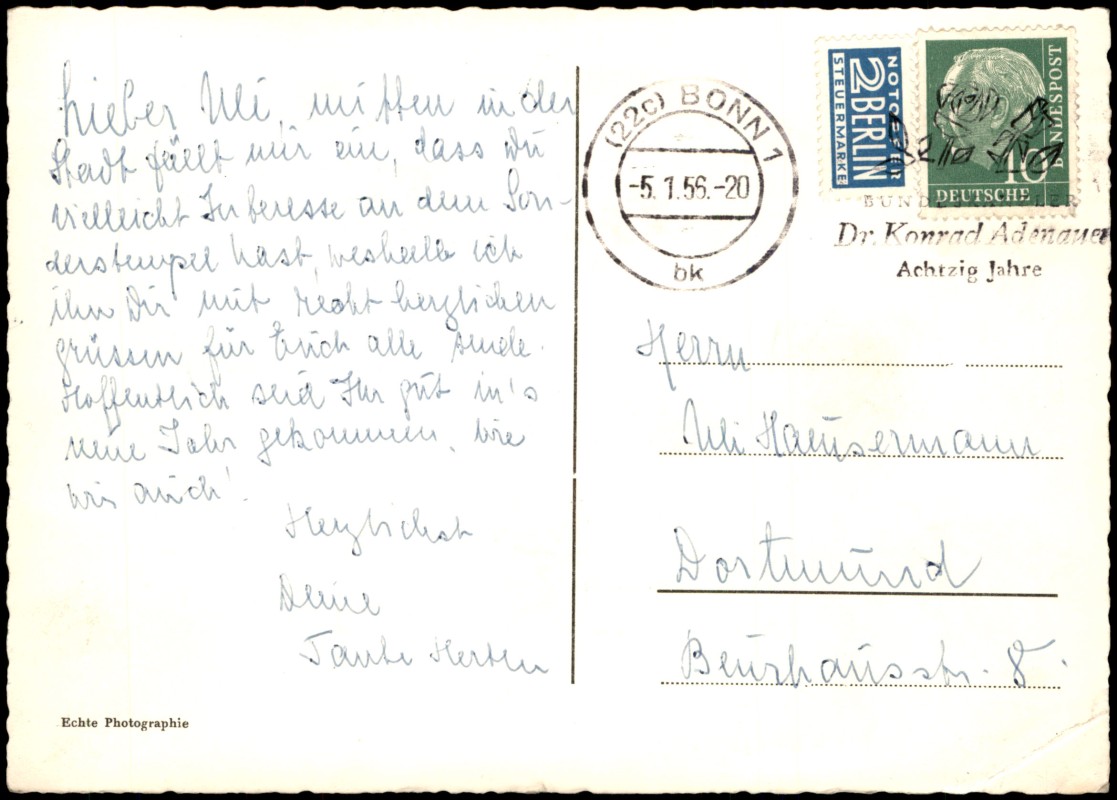 Lieber Uli, mitten in der
Stadt fällt mir ein, dass Du
vielleicht Interesse an dem Son-
derstempel hast, weshalb ich
ihn Dir mit recht herzlichen
Grüssen für Euch alle sende.
Hoffentlich seid Ihr gut in's
neue Jahr gekommen, wie
wir auch!
Herzlichst
Deine
Tante
Echte Photographie
(22c) BONN 1
-5.1.56.-20
bk
NOTOPFER
2 BERLIN
STEUERMARKE
10
DEUTSCHE
BUNDESPOST
BUNDESKANZLER
Dr. Konrad Adenauer
Achtzig Jahre
Herrn
Uli Hausermann
Dortmund
Beurhausstr. 8.